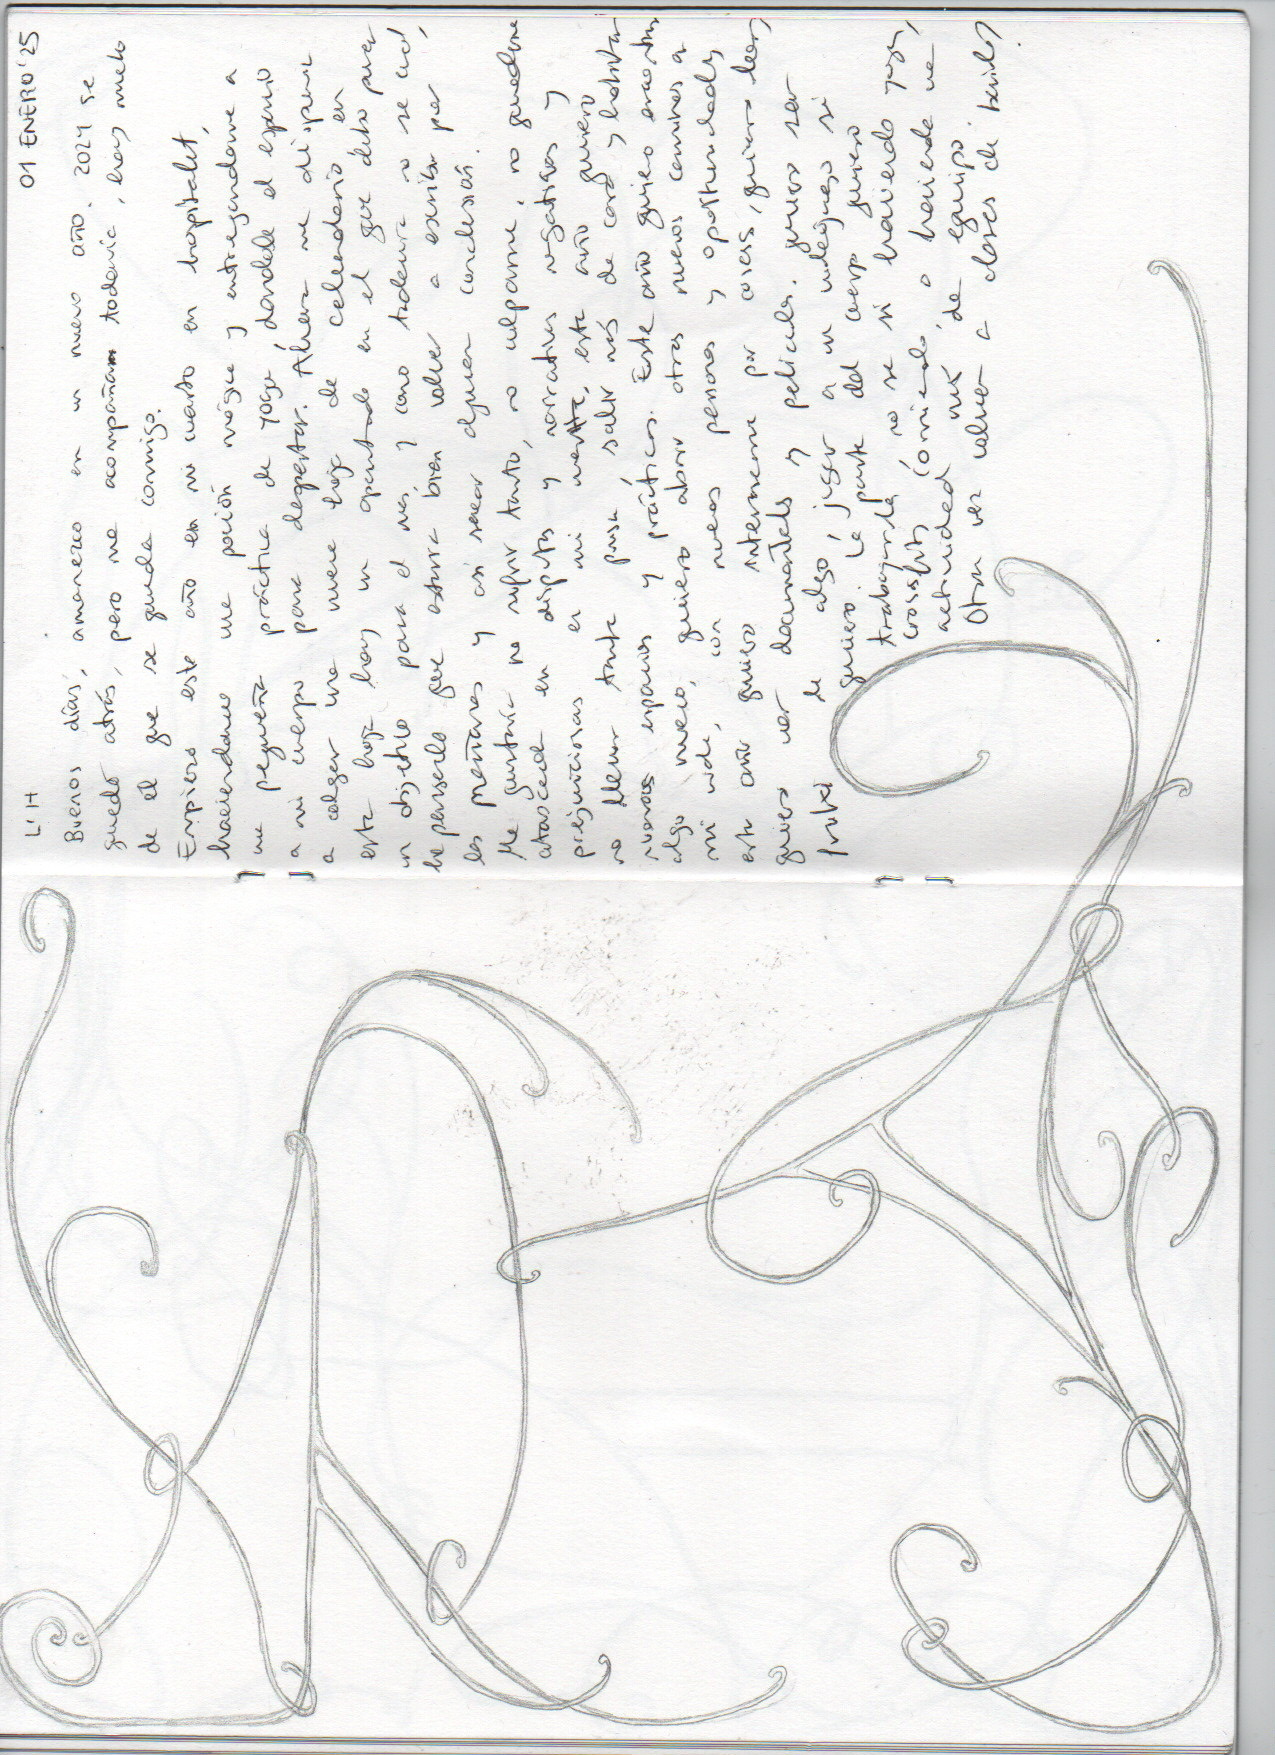 L'H 01 ENERO '25
Buenos días, amanezco en un nuevo año. 2024 se
quedó atrás, pero me acompañan todavía, hay mucho
de el que se queda conmigo.
Empiezo este año en mi cuarto en hospitalet,
haciendome una poción mágica y entregandome a
una pequeña práctica de yoga, dandole el espacio
a mi cuerpo para despertar. Ahora me dispuse
a colgar una nueva hoja de calendario en
esta hoja hay un apartado en el que debo poner
un objetivo para el mes y como todavía no se cual,
he pensado que estaría bien volver a escribir por
las mañanas y así sacar alguna conclusión.
Me gustaría no sufrir tanto, no culparme, no quedarme
atascada en disputas y narrativas negativas y
prejuiciosas en mi mente, este año quiero
no llevar tanta prisa, salir más de casa y habitar
nuevos espacios y prácticas. Este año quiero
algo nuevo, quiero abrir otros nuevos caminos a
mi vida, con nuevas personas y oportunidades,
este año quiero interesarme por cosas, quiero leer,
quiero ver documentales y peliculas. quiero ser
de algo, jugar a un videojuego si
quiero. La parte del cuerpo quiero
trabajarla no se si haciendo yoga,
crossfit, corriendo, o haciendo una
actividad más de equipo.
Otra vez volver a clases de